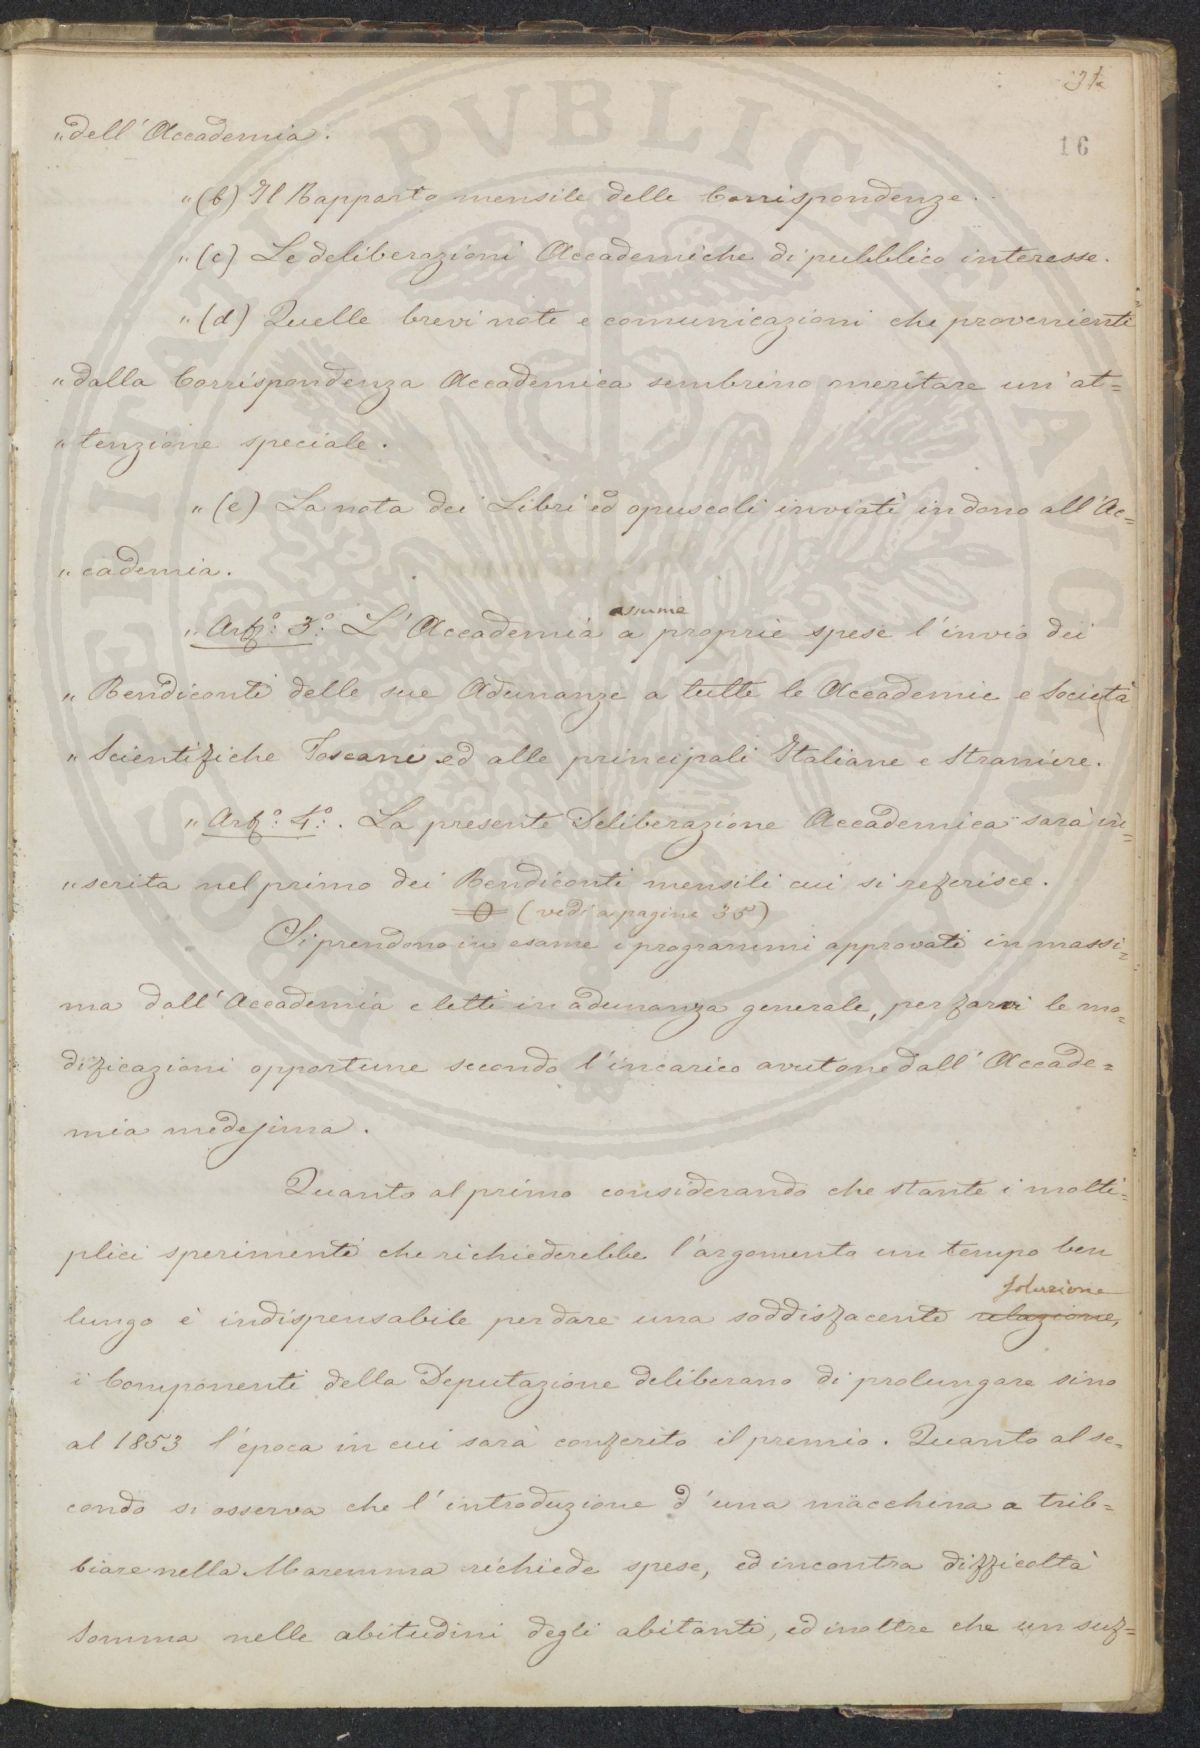 31.
16
„dell' Accademia.
„(b) Il Rapporto mensile delle Corrispondenze.
„(c) Le deliberazioni Accademiche di pubblico interesse.
„(d) Quelle brevi note e comunicazioni che provenienti
„dalla Corrispondenza Accademica sembrino meritare un' at=
„tenzione speciale.
„(e) La nota dei Libri ed opuscoli inviati in dono all' Ac=
„cademia.
assume
„Art.º 3.º L' Accademia a proprie spese l'invio dei
„Rendiconti delle sue Adunanze a tutte le Accademie e Società
„Scientifiche Toscane ed alle principali Italiane e Straniere.
„Art.º 4.º. La presente Deliberazione Accademica sarà in=
„serita nel primo dei Rendiconti mensili cui si referisce.
(vedi a pagine 35)
Si prendono in esame i programmi approvati in massi=
ma dall' Accademia e letti in adunanza generale, per farvi le mo=
dificazioni opportune secondo l'incarico avutone dall' Accade=
mia medesima.
Quanto al primo considerando che stante i molti=
plici sperimenti che richiederebbe l'argomento un tempo ben
soluzione
lungo è indispensabile per dare una soddisfacente relazione,
i Componenti della Deputazione deliberano di prolungare sino
al 1853 l'epoca in cui sarà conferito il premio. Quanto al se=
condo si osserva che l'introduzione d'una macchina a treb=
biare nella Maremma richiede spese, ed incontra difficoltà
somma nelle abitudini degli abitanti, ed inoltre che un suf=
PVBLICE